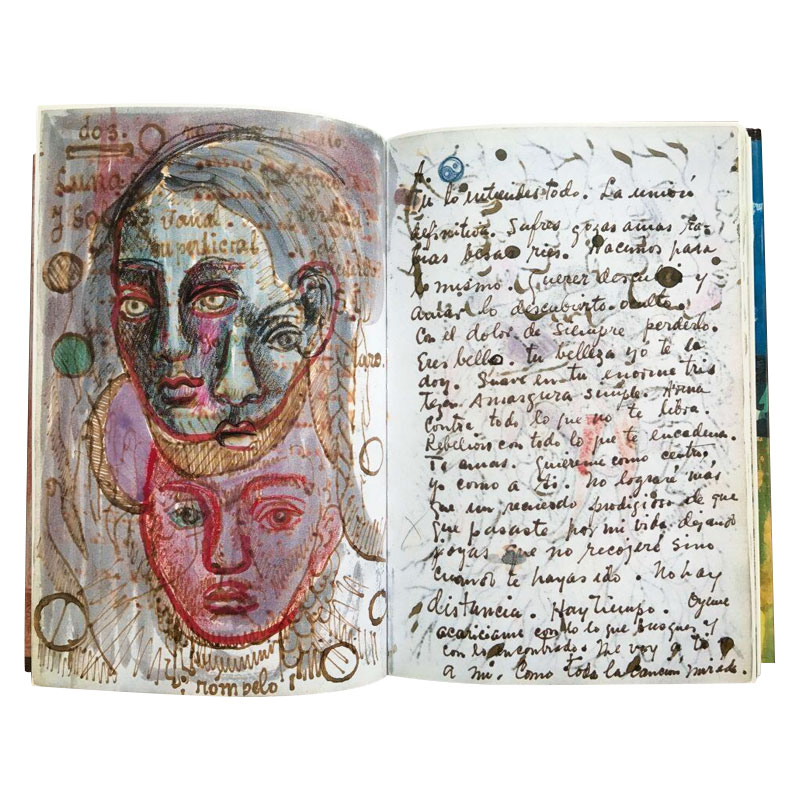 dos.
Luna
y Sol
superficial
claro.
y rompelo
A.
Tu lo entiendes todo. La unión
definitiva. Sufres gozas amas ra-
bias besas ries. Nacimos para
lo mismo. Querer descubrir y
amar lo descubierto. oculto.
Con el dolor de siempre perderlo.
Eres bello. tu belleza yo te la
doy. Suave en tu enorme tris
teza. Amargura simple. Arma
contra todo lo que no te libra.
Rebelión con todo lo que te encadena.
Te amas. Quiereme como centro.
yo como a ti. No lograré más
que un recuerdo prodigioso de que
que pasaste por mi vida dejando
joyas que no recogeré sino
cuando te hayas ido. No hay
distancia. Hay tiempo. Oyeme
acariciame con lo que busques y
con lo encontrado. Me voy a ti
a mi. Como toda la cancion mirada.